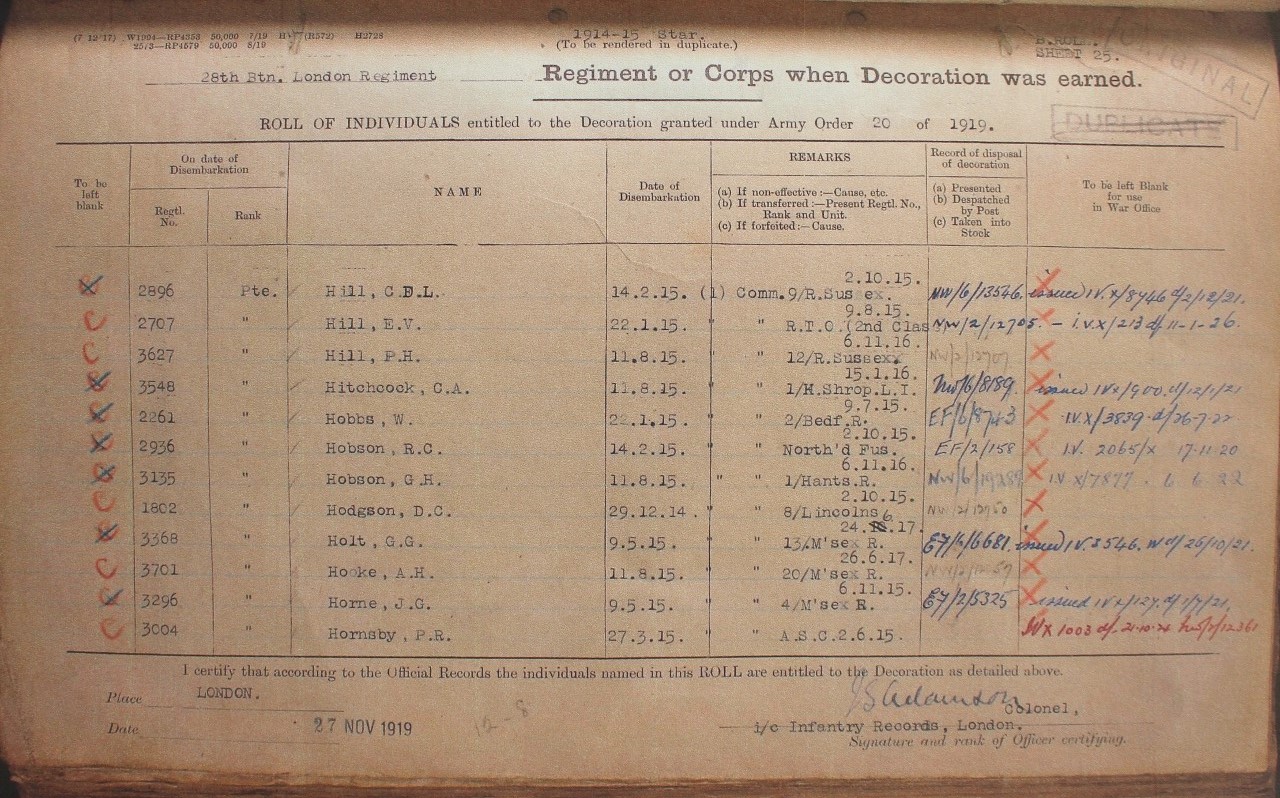 (7 12 17) W1904—RP4358 50,000 7/19 (R572) H2728
25/3—RP4579 50,000 8/19
1914-15 Star.
(To be rendered in duplicate.)
B.ROLL.
SHEET 25.
ORIGINAL
28th Btn. London Regiment Regiment or Corps when Decoration was earned.
DUPLICATE
ROLL OF INDIVIDUALS entitled to the Decoration granted under Army Order 20 of 1919.
To be left blank
On date of Disembarkation
Regtl. No.
Rank
NAME
Date of Disembarkation
REMARKS
(a) If non-effective :—Cause, etc.
(b) If transferred :—Present Regtl. No., Rank and Unit.
(c) If forfeited :—Cause.
Record of disposal of decoration
(a) Presented
(b) Despatched by Post
(c) Taken into Stock
To be left Blank for use in War Office
2.10.15.
2896 Pte. Hill, C.E.L. 14.2.15. (1) Comm. 9/R.Sussex. NW/6/13546. issued IV.X/8746 d/2/12/21.
9.8.15.
2707 " Hill, E.V. 22.1.15. " " R.T.O.(2nd Clas NW/2/12705. — i.v.x/213 d/11-1-26.
6.11.16.
3627 " Hill, P.H. 11.8.15. " " 12/R.Sussex. NW/2/12707
15.1.16.
3548 " Hitchcock, C.A. 11.8.15. " " 1/H.Shrop.L.I. NW/6/8189. issued IVX/900. d/12/1/21
9.7.15.
2261 " Hobbs, W. 22.1.15. " " 2/Bedf.R. EF/6/8743 IV.X/3839 d/26-7-22
2.10.15.
2936 " Hobson, R.C. 14.2.15. " " North'd Fus. EF/2/158 I.V. 2065/X 17-11-20
6.11.16.
3135 " Hobson, G.H. 11.8.15. " " 1/Hants.R. NW/6/19289 IV X/7877 . 6 6 22
2.10.15.
1802 " Hodgson, D.C. 29.12.14. " " 8/Lincolns NW/2/12750
24.6.17.
3368 " Holt, G.G. 9.5.15. " " 13/M'sex R. EF/6/6681. issued IV.3546. W d/25/10/21.
26.6.17.
3701 " Hooke, A.H. 11.8.15. " " 20/M'sex R.
6.11.15.
3296 " Horne, J.G. 9.5.15. " " 4/M'sex R. EF/2/5325 issued IVX/127. d/1/7/21.
3004 " Hornsby, P.R. 27.3.15. " " A.S.C.2.6.15. IVX 1003 d/- 21-10-24
I certify that according to the Official Records the individuals named in this ROLL are entitled to the Decoration as detailed above.
Place LONDON.
JSAdamson
Colonel,
Date 27 NOV 1919
12-8
i/c Infantry Records, London.
Signature and rank of Officer certifying.